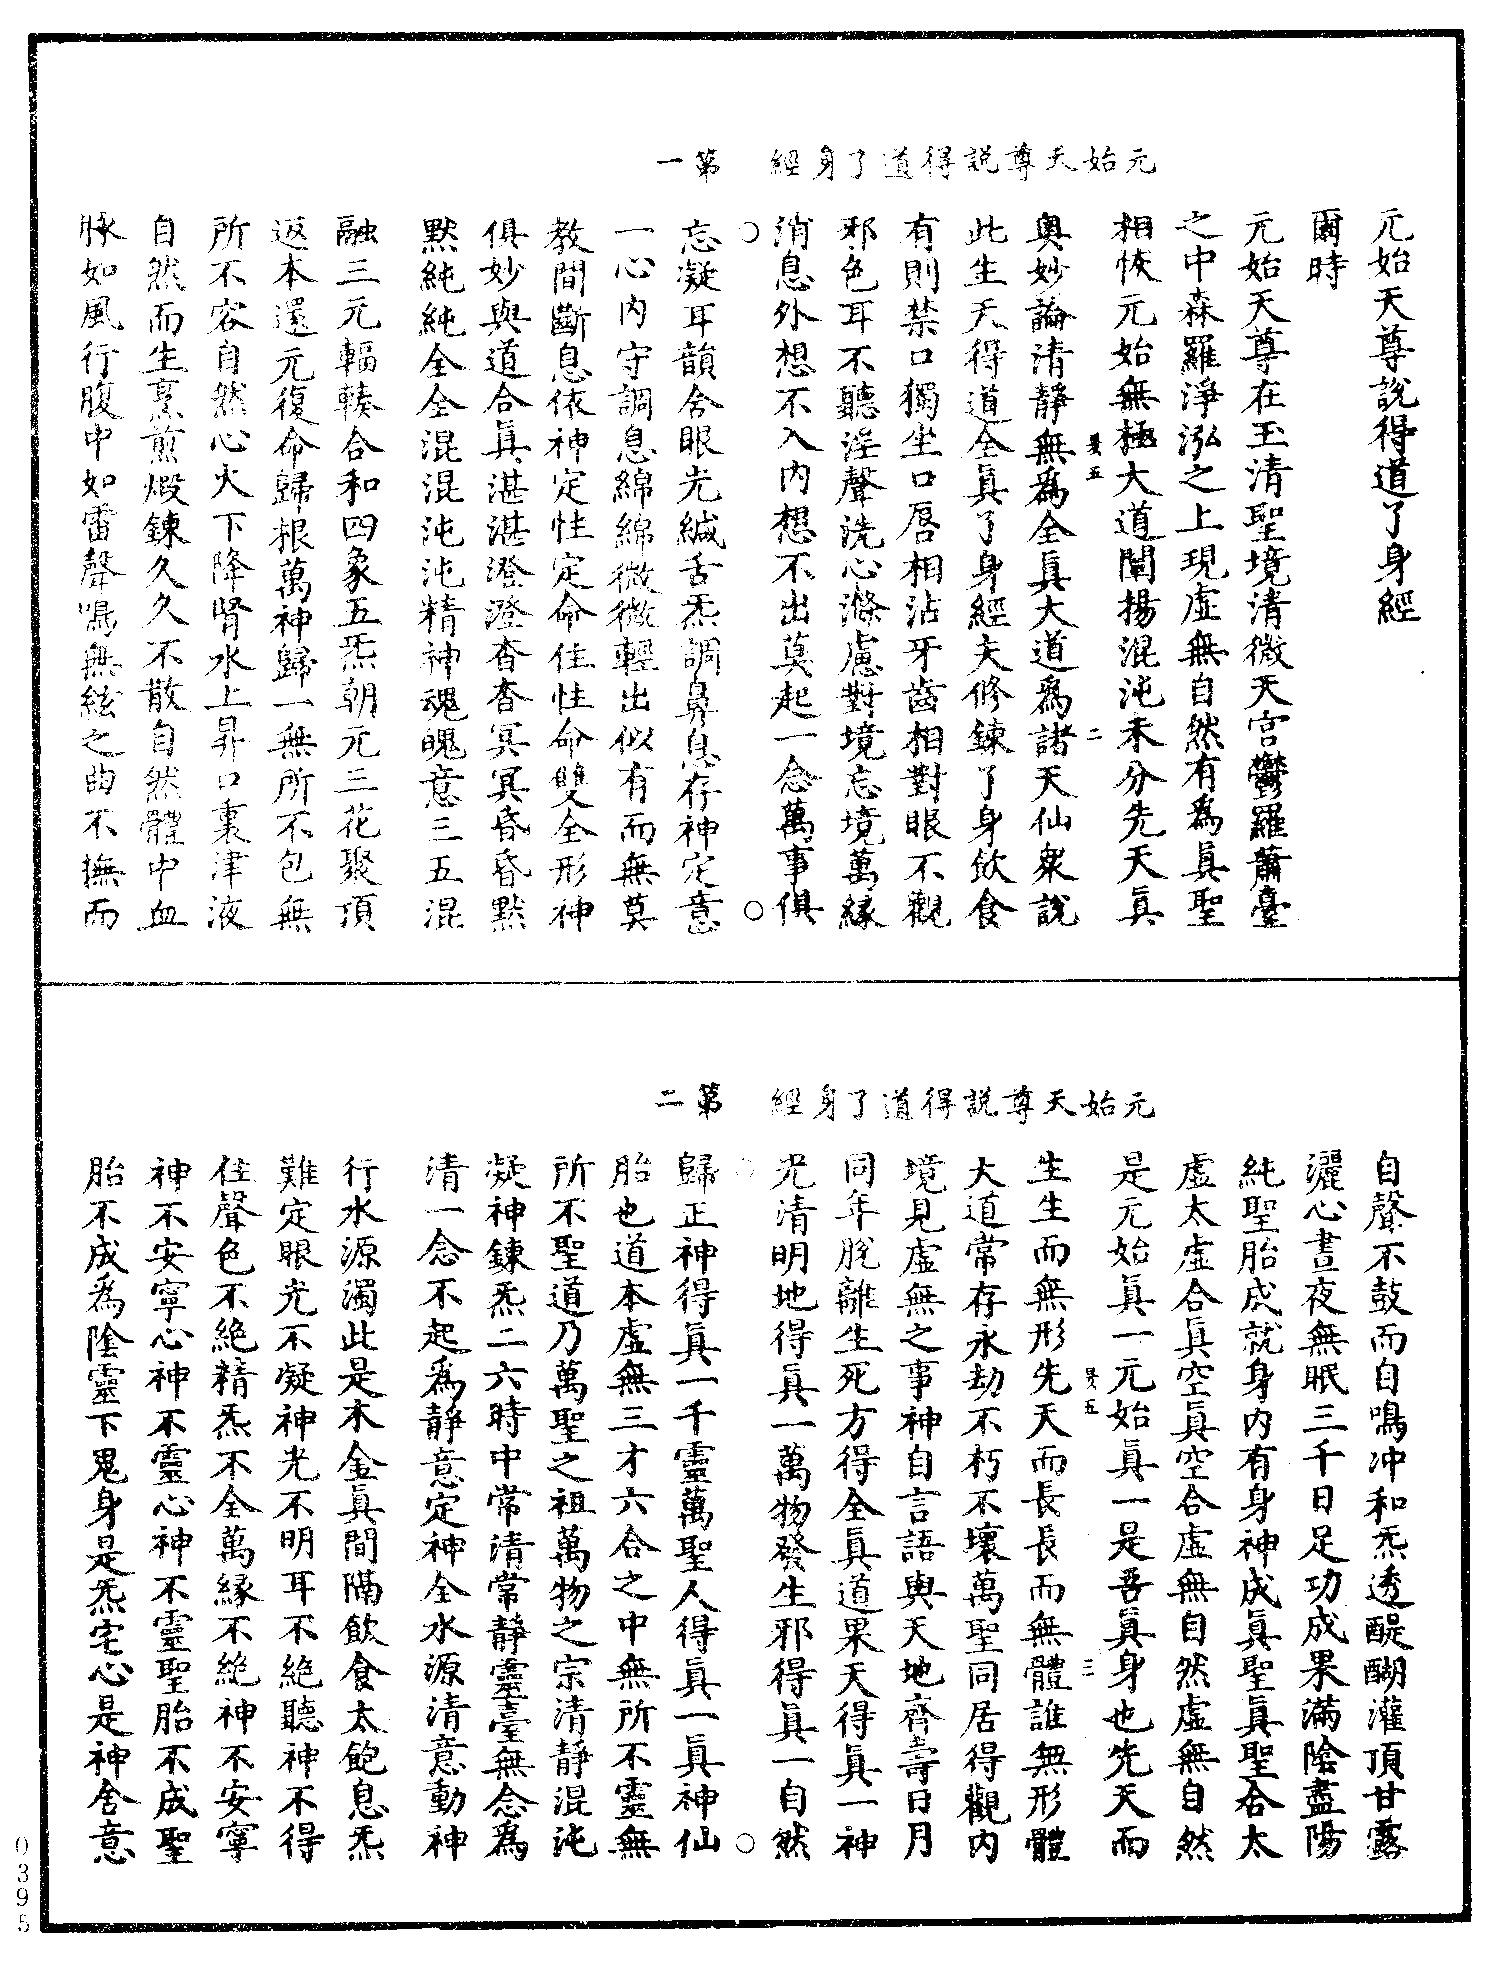 元始天尊說得道了身經　第一
元始天尊說得道了身經
爾時
元始天尊在玉清聖境清微天宫鬱羅蕭臺
之中森羅淨泓之上現虛無自然有為眞聖
相恢元始無極大道闡揚混沌未分先天眞
奧妙論清靜無為全眞大道為諸天仙衆說
此生天得道全眞了身經夫修鍊了身飲食
有則禁口獨坐口唇相沾牙齒相對眼不觀
邪色耳不聽淫聲洗心滌慮對境忘境萬緣
消息外想不入内想不出莫起一念萬事俱
忘凝耳韻舍眼光緘舌炁調鼻息存神定意
一心内守調息綿綿微微輕出似有而無莫
教間斷息依神定性定命住性命雙全形神
俱妙與道合眞湛湛澄澄杳杳冥冥昏昏默
默純純全全混混沌沌精神魂魄意三五混
融三元輻輳合和四象五炁朝元三花聚頂
返本還元復命歸根萬神歸一無所不包無
所不容自然心火下降腎水上昇口裏津液
自然而生烹煎煅鍊久久不散自然體中血
脉如風行腹中如雷聲鳴無絃之曲不撫而
元始天尊說得道了身經　第二
自聲不鼓而自鳴冲和炁透醍醐灌頂甘露
灑心晝夜無眠三千日足功成果滿陰盡陽
純聖胎成就身内有身神成眞聖眞聖合太
虛太虛合眞空眞空合虛無自然虛無自然
是元始眞一元始眞一是吾眞身也先天而
生生而無形先天而長長而無體誰無形體
大道常存永劫不朽不壞萬聖同居得觀内
境見虛無之事神自言語與天地齊壽日月
同年脫離生死方得全眞道果天得眞一神
光清明地得眞一萬物發生邪得眞一自然
歸正神得眞一千靈萬聖人得眞一眞神仙
胎也道本虛無三才六合之中無所不靈無
所不聖道乃萬聖之祖萬物之宗清靜混沌
凝神鍊炁二六時中常清常靜靈臺無念為
清一念不起為靜意定神全水源清意動神
行水源濁此是木金眞間隔飲食太飽息炁
難定眼光不凝神光不明耳不絶聽神不得
住聲色不絶精炁不全萬緣不絶神不安寧
神不安寧心神不靈心神不靈聖胎不成聖
胎不成為陰靈下鬼身是炁宅心是神舍意
0395